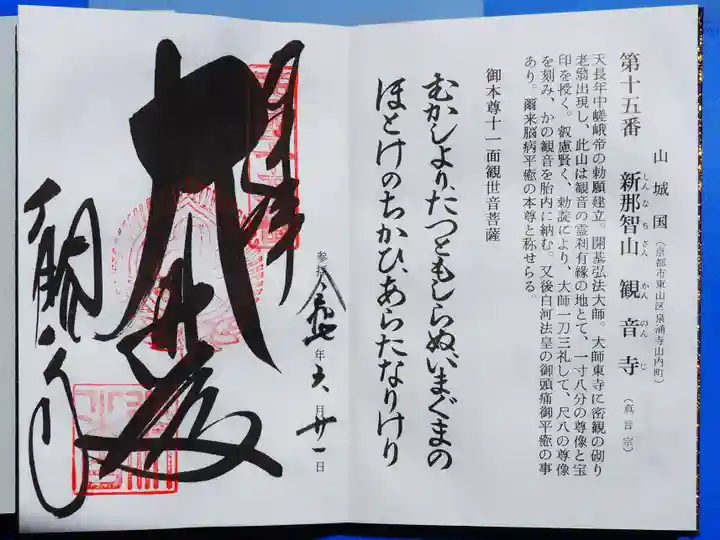 山城国(京都市東山区泉涌寺山内町)
第十五番 新那智山 観音寺(真言宗)
しんなちさん かんのんじ
天長年中嵯峨帝の勅願建立。開基弘法大師。大師東寺に密観の砌り
老翁出現し、此山は観音の霊利有縁の地とて、一寸八分の尊像と宝
印を授く。叡慮賢く、勅謚により、大師一刀三礼して、尺八の尊像
を刻み、かの観音を胎内に納む。又後白河法皇の御頭痛御平癒の事
あり。爾来脳病平癒の本尊と称せらる。
御本尊十一面観世音菩薩
むかしより、たつともしらぬ、いまぐまの
ほとけのちかひ、あらたなりけり
参拝 令和七年 六月 廿一日
奉拝
大悲殿
観音寺